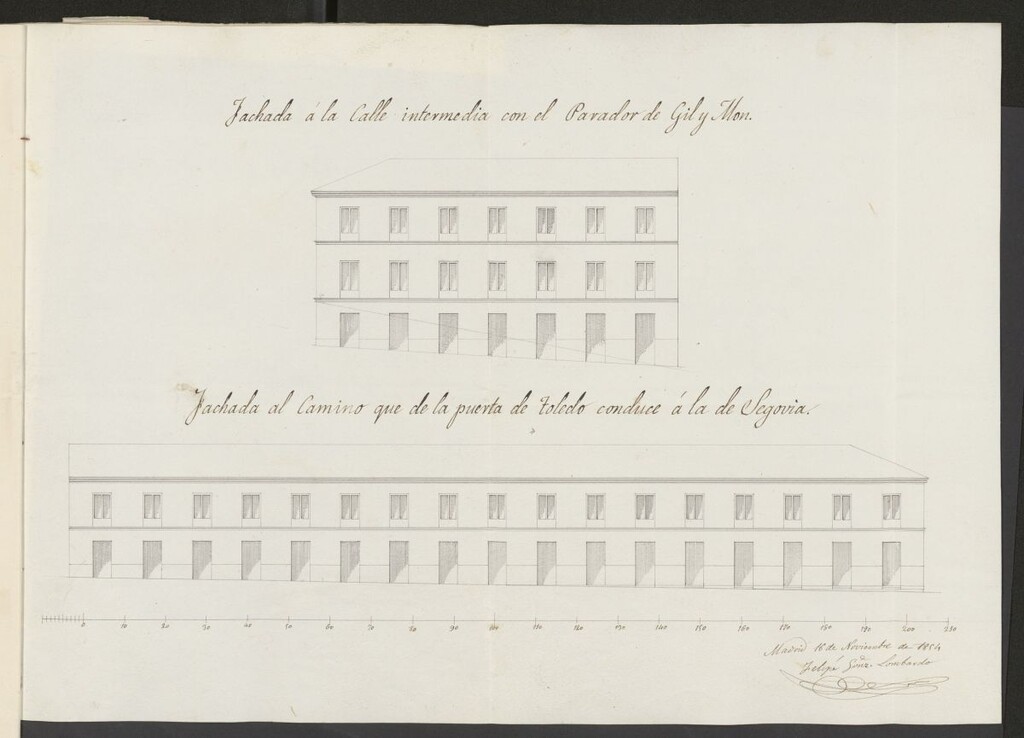 Fachada á la Calle intermedia con el Parador de Gil y Mon.
Fachada al Camino que de la puerta de Toledo conduce á la de Segovia.
0 10 20 30 40 50 60 70 80 90 100 110 120 130 140 150 160 170 180 190 200 210
Madrid 16 de Noviembre de 1854
Felipe Lombardo